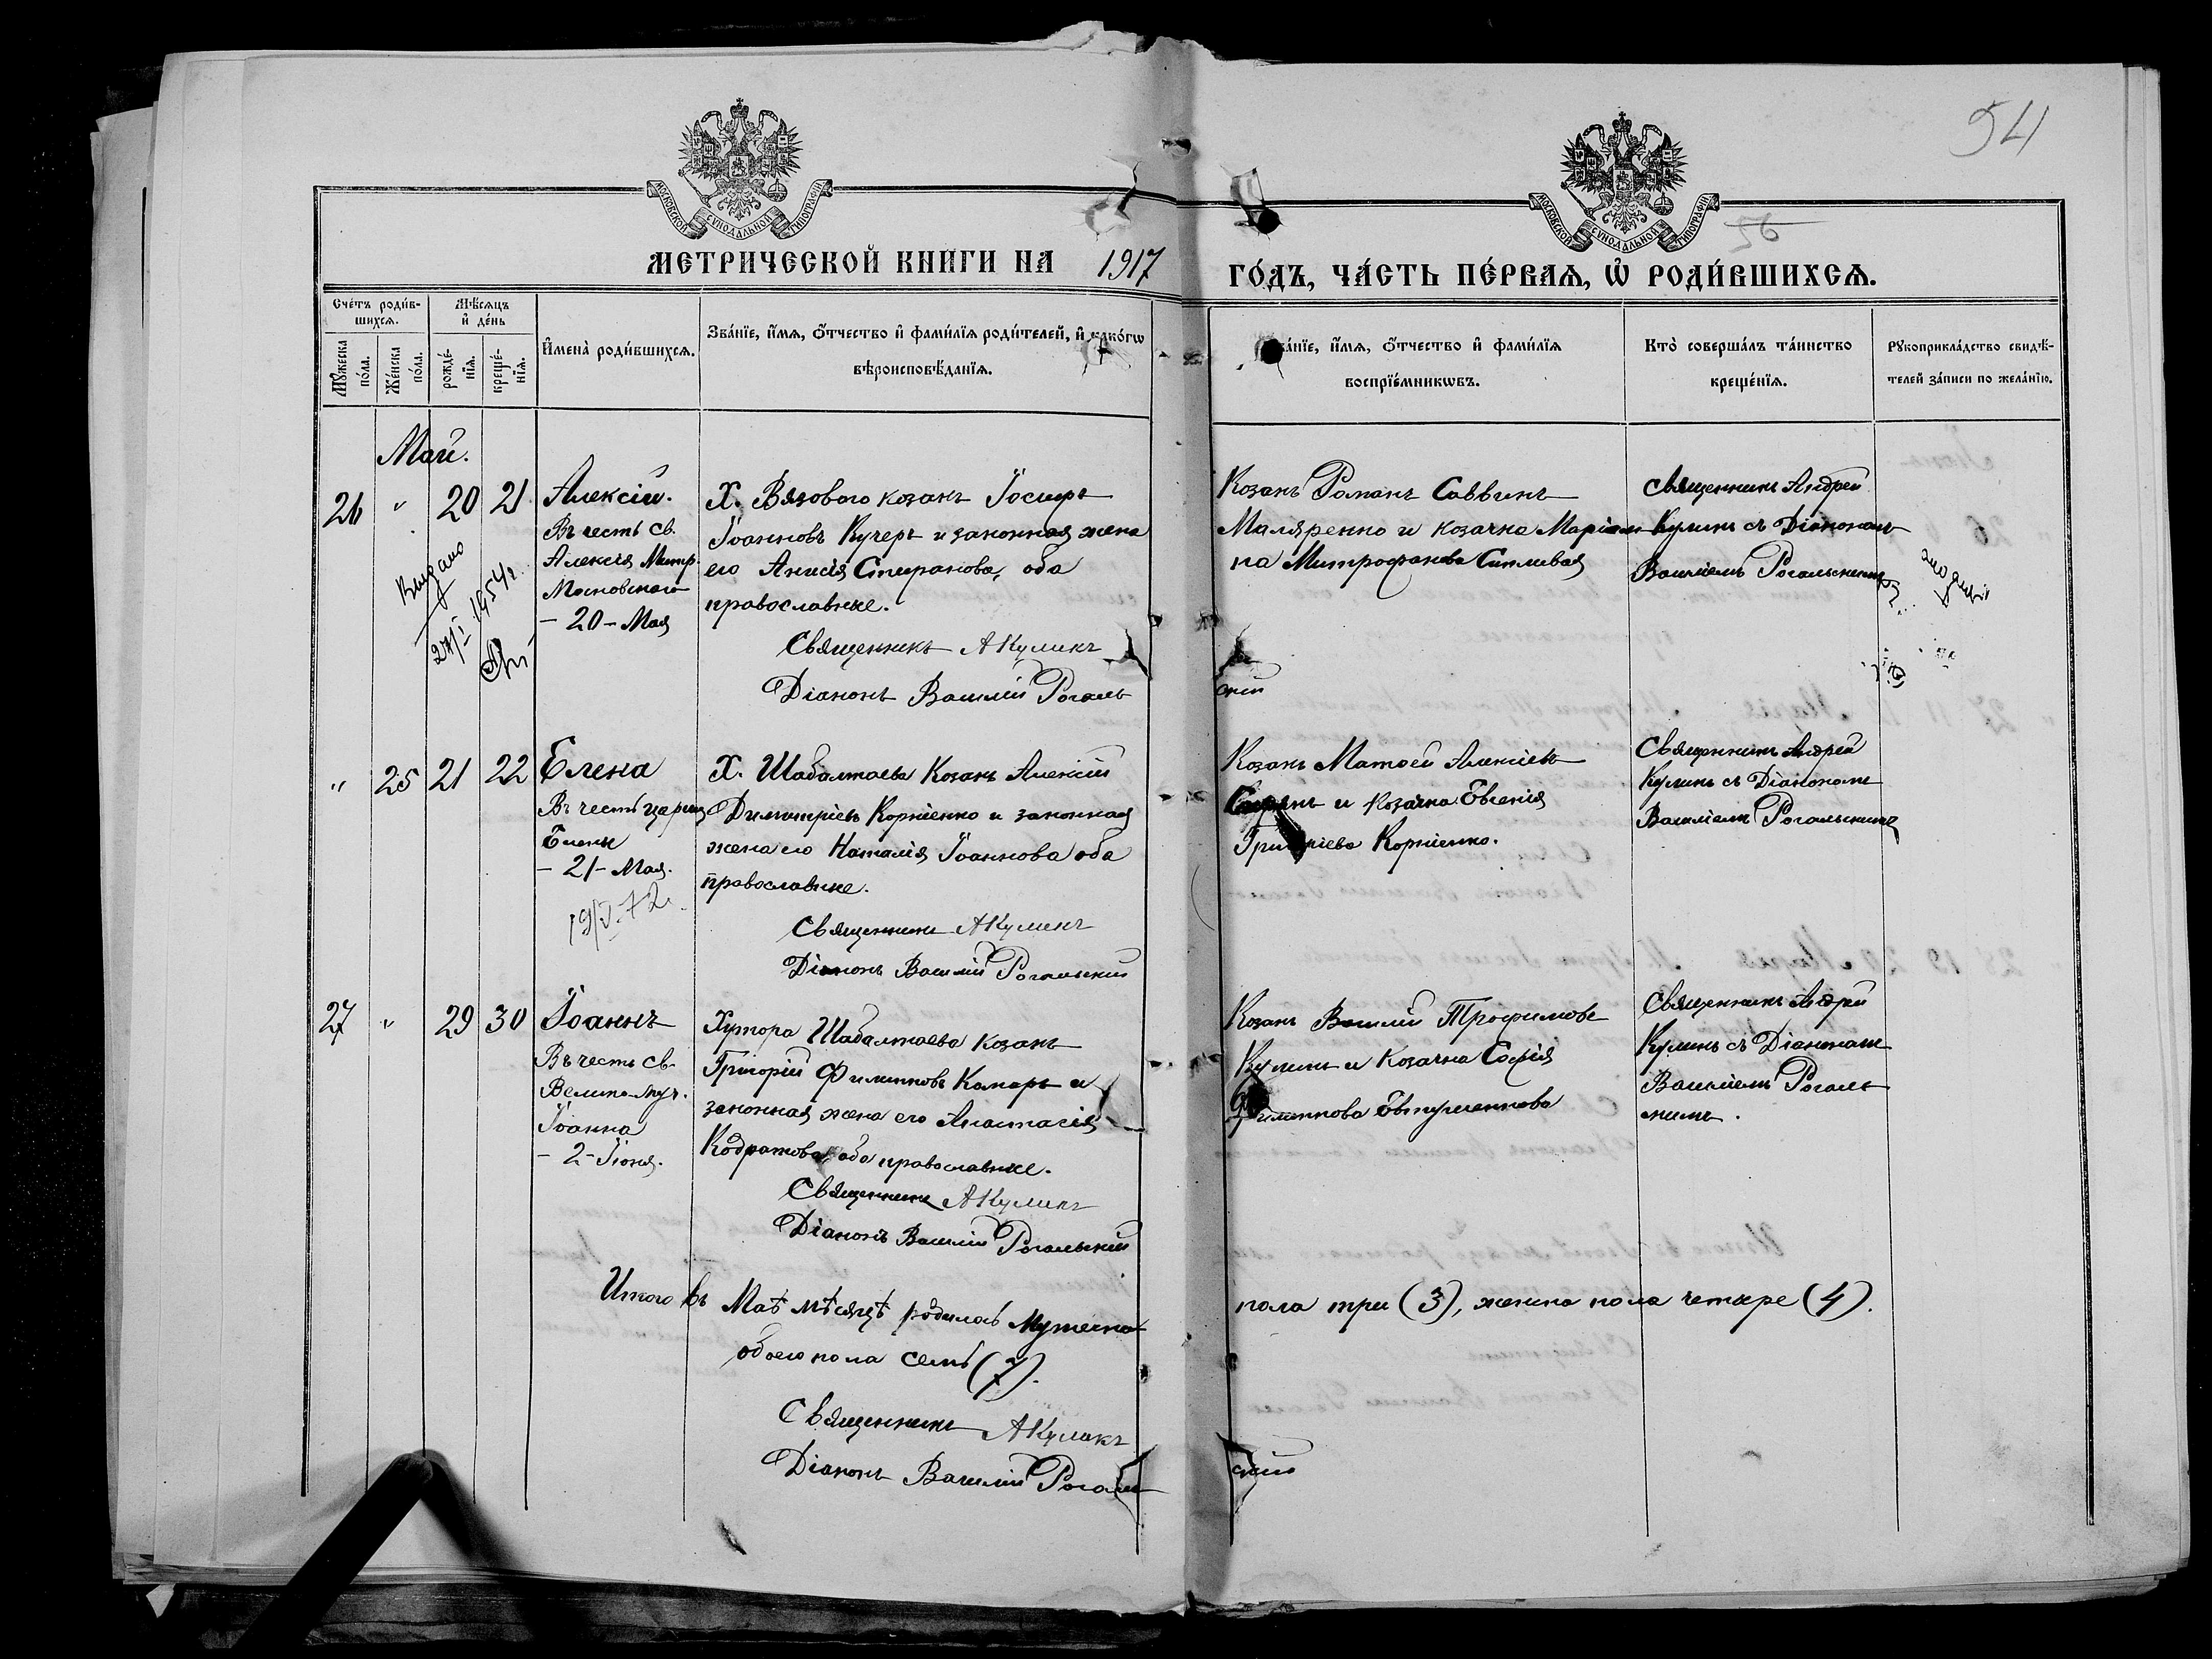 54
56
МОСКОВСКОЙ СѴНОДАЛЬНОЙ ТИПОГРАФІИ
МОСКОВСКОЙ СѴНОДАЛЬНОЙ ТИПОГРАФІИ
МЕТРИЧЕСКОЙ КНИГИ НА 1917
ГО́ДЪ, ЧА́СТЬ ПЕ́РВАѦ, Ѡ҆ РОДИ́ВШИХСѦ.
Сче́тъ роди́в-
шихсѧ.
Мѣ́сѧцъ
и҆ де́нь
Мꙋ́жеска
по́ла.
Же́нска
по́ла.
рожде́-
нїѧ.
креще́-
нїѧ.
И҆мена̀ роди́вшихсѧ.
Зва́нїе, и҆́мѧ, ѻ҆́тчество и҆ фами́лїѧ роди́телей, и҆ како́гѡ
вѣроисповѣ́данїѧ.
зва́нїе, и҆́мѧ, ѻ҆́тчество и҆ фами́лїѧ
воспрїе́мникѡвъ.
Кто̀ соверша́лъ та́инство
креще́нїѧ.
Рꙋкоприкла́дство свидѣ́-
телей за́писи по жела́нїю.
Май.
26 " 20 21
Алексій.
Въ честь св.
Алексія Митр.
Московскаго
- 20 - Мая
Выдано
27/I 1954 г.
Х. Вязового козакъ Іосифъ
Іоанновъ Кучеръ и законная жена
его Анисія Спиранова, оба
православные.
Священникъ А Куликъ
Діаконъ Василій Рогаль
Козакъ Романъ Саввинъ
Маляренко и козачка Маріам
на Митрофанова Сипливая
ский
Священникъ Андрей
Куликъ съ Діакономъ
Василіемъ Рогальскимъ
" 25 21 22
Елена
Въ честь царицы
Елены
- 21 - Мая.
19/V-72.
Х. Шабалтаева Козакъ Алексій
Димитріевъ Корніенко и законная
жена его Наталія Іоаннова оба
православные.
Священникъ А Куликъ
Діаконъ Василій Рогальский
Козакъ Матѳей Алексіевъ
и Козачка Евгенія
Григоріева Корніенко.
Священникъ Андрей
Куликъ съ Діакономъ
Василіемъ Рогальскимъ
27 " 29 30
Іоаннъ
Въ честь св.
Велико-муч.
Іоанна
- 2 - Іюня.
Хутора Шабалтаева козакъ
Григорій Филипповъ Комаръ и
законная жена его Анастасія
Кодратова, оба православные.
Священникъ А Куликъ
Діаконъ Василій Рогальский
Козакъ Василій Трофимовъ
Куликъ и Козачка Софія
Филиппова Евтушенкова
Священникъ Андрей
Куликъ съ Діакономъ
Василіемъ Рогаль
скимъ.
Итого въ Маѣ мѣсяцѣ родилось мужеска
пола три (3), женска пола четыре (4).
обоего пола семь (7).
Священникъ А Куликъ
Діаконъ Василій Рогаль
ский